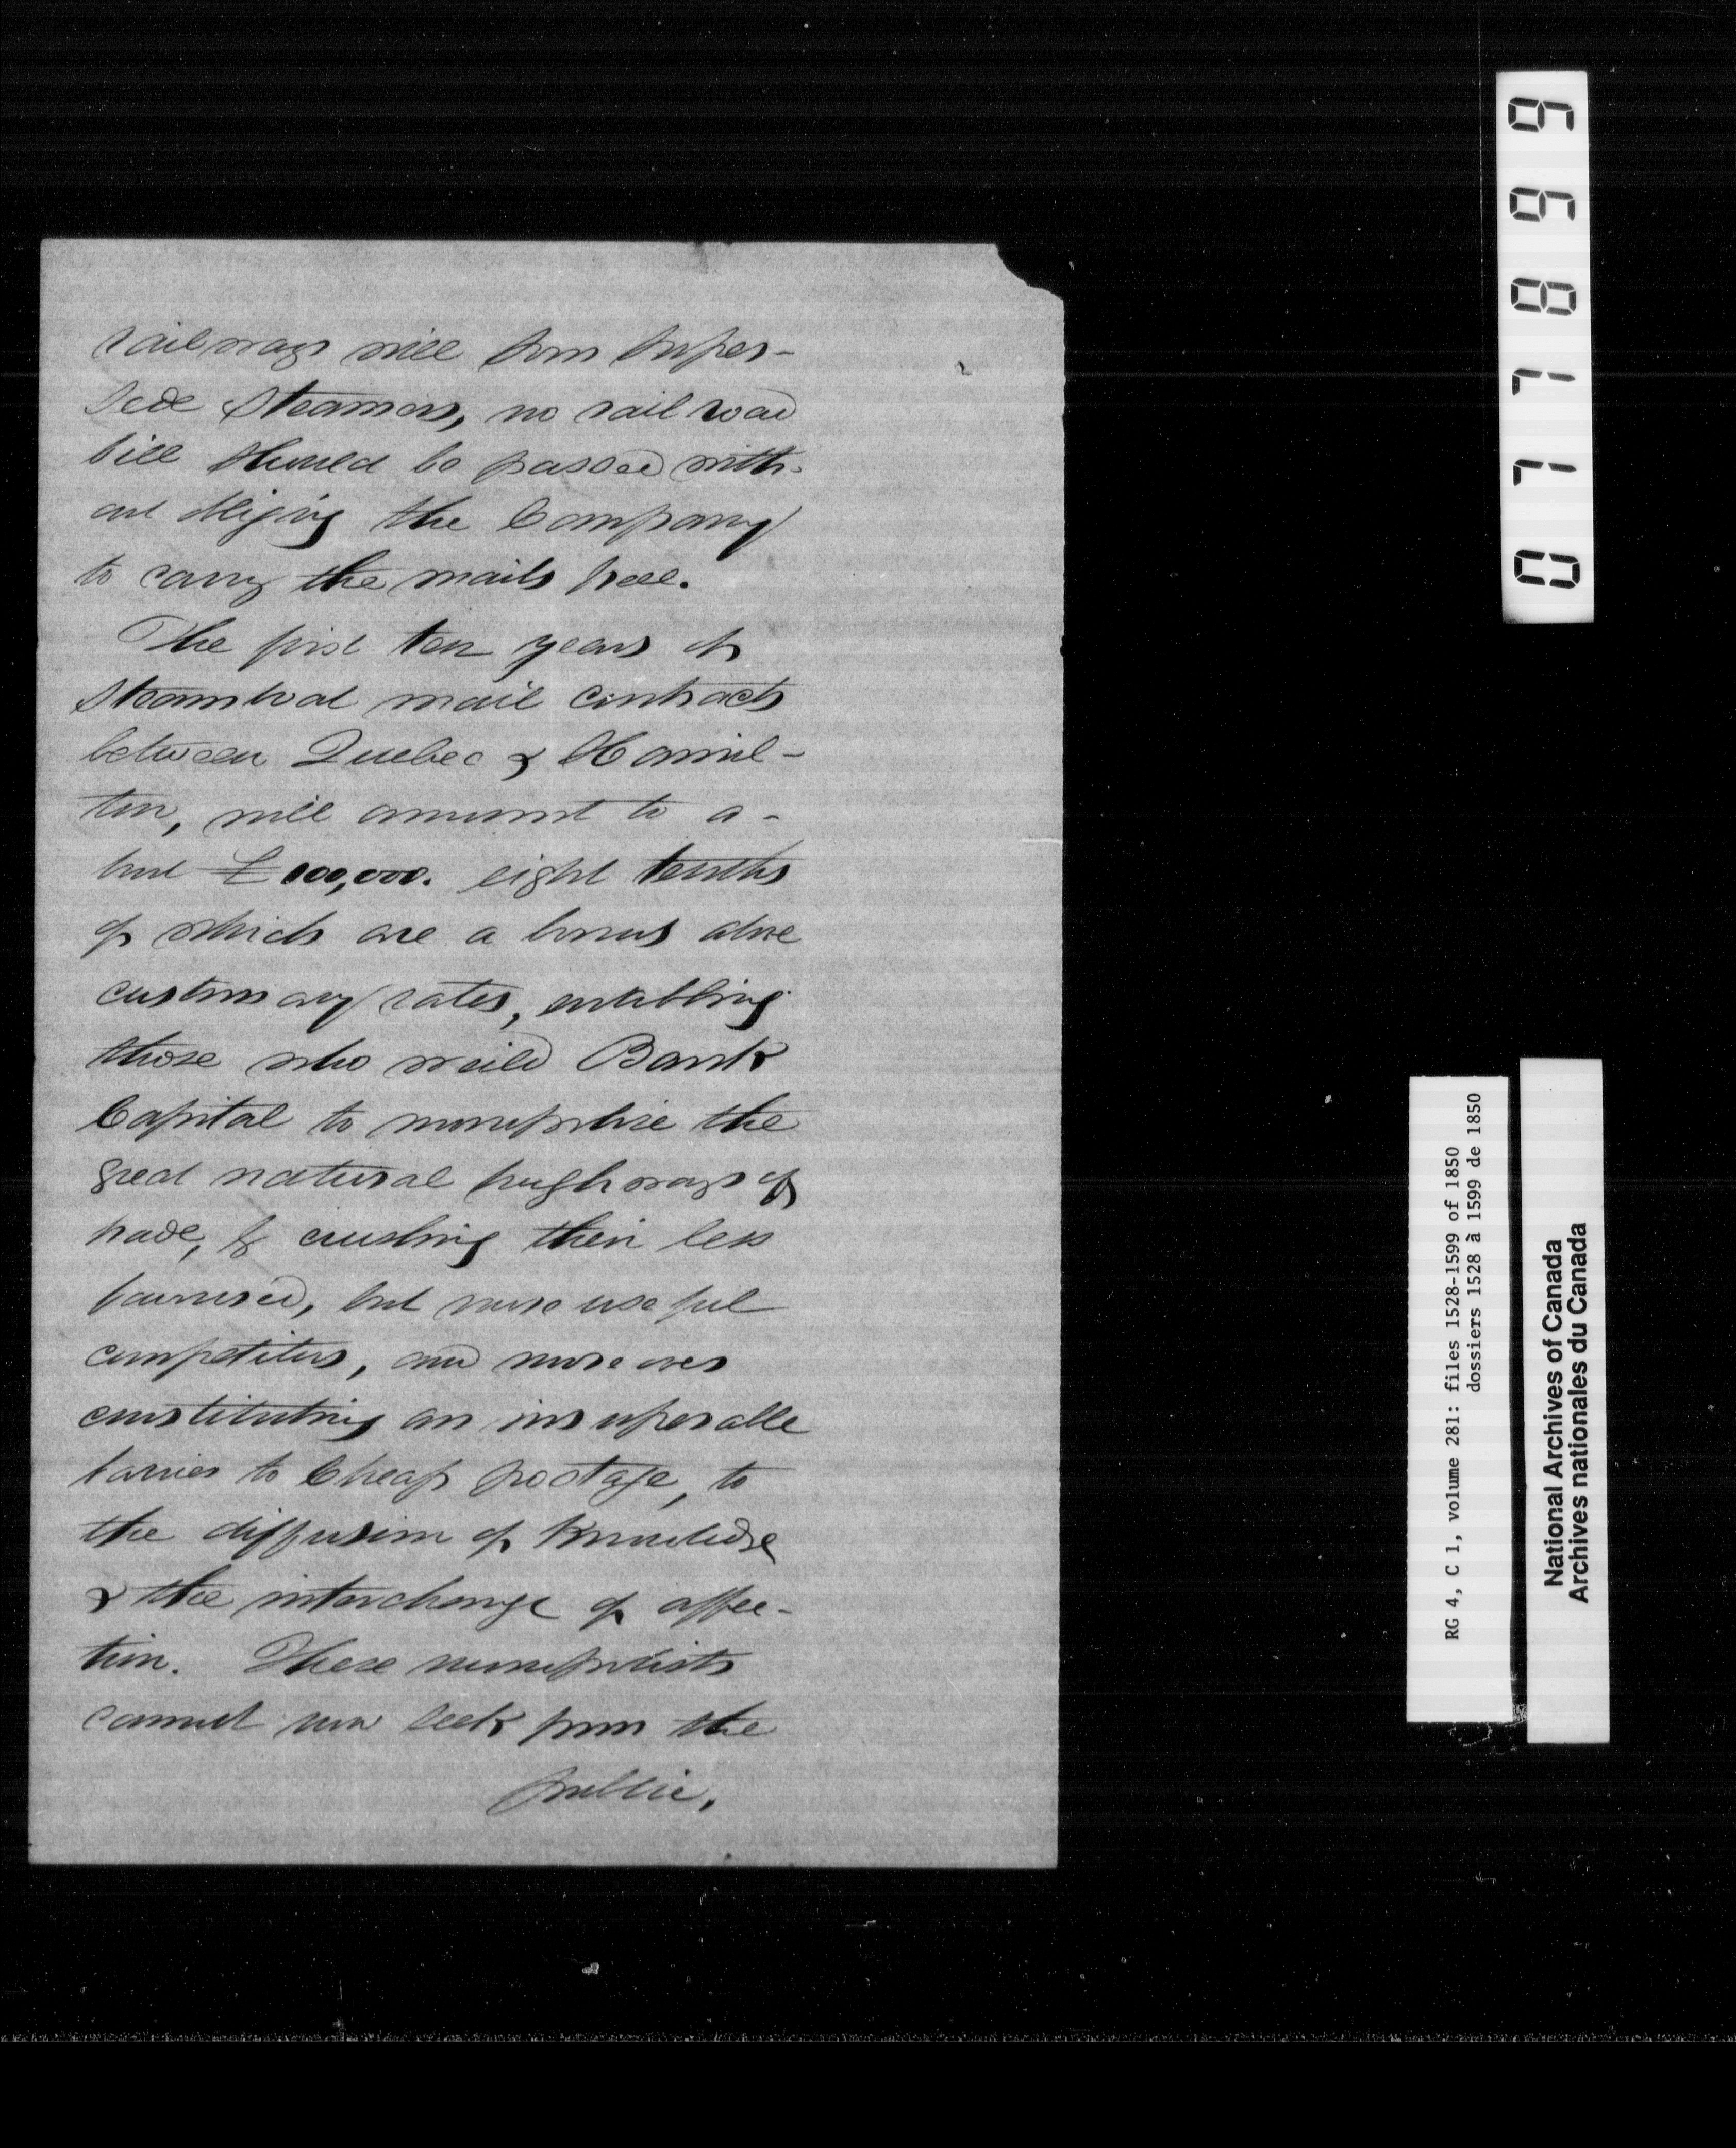 railways will soon super-
sede steamers, no rail road
bill should be passed with-
out obliging the Company
to carry the mails free.
The first ten years of
steamboat mail contracts
between Quebec & Hamil-
ton, will amount to a-
bout £100,000. eight tenths
of which are a bonus above
customary rates, entabling
those who weild Bank
Capital to monopolise the
great natural highways of
trade, by crushing their less
favoured, but more useful
competitors, and moreover
constituting an insuperable
barrier to Cheap postage, to
the diffusion of Knowledge
& the interchange of affec-
tion. These monopolists
cannot now seek from the
public.
077899
RG 4, C 1, volume 281: files 1528-1599 of 1850
dossiers 1528 à 1599 de 1850
National Archives of Canada
Archives nationales du Canada